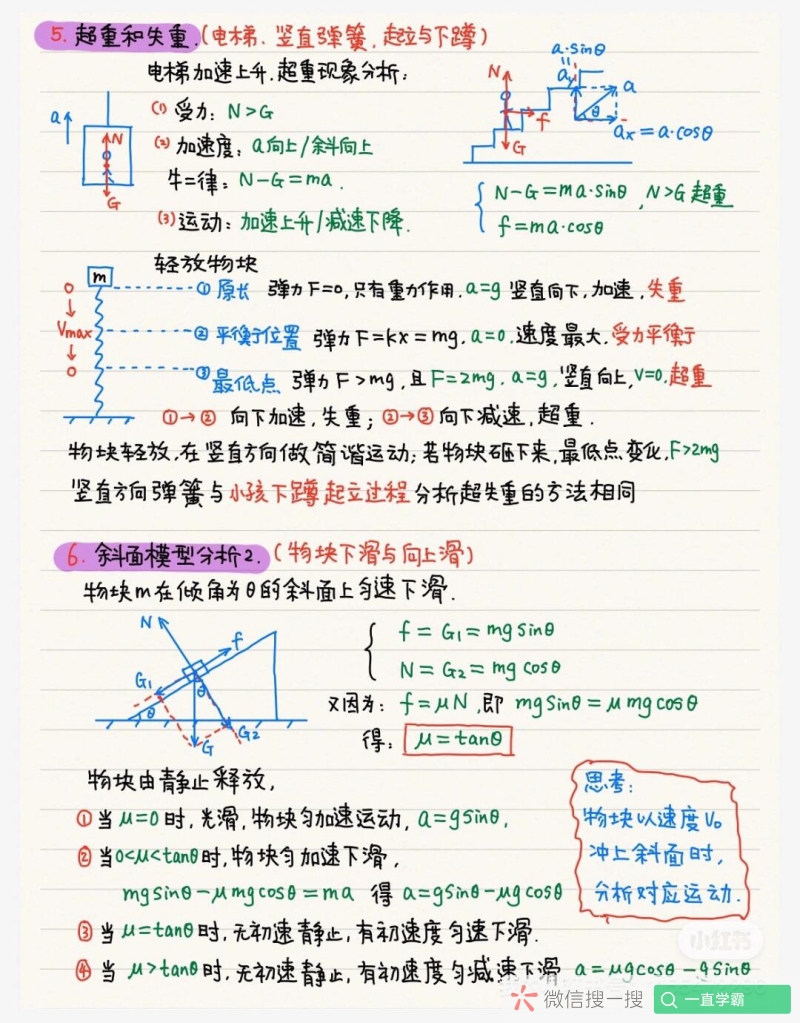 5. 超重和失重.(电梯、竖直弹簧,起立与下蹲)
电梯加速上升,超重现象分析:
(1) 受力: N>G
(2) 加速度: a向上/斜向上
牛二律: N-G=ma.
(3) 运动: 加速上升/减速下降.
a
N
G
a·sinθ
N
ay
a
θ
f
ax=a·cosθ
G
N-G=ma·sinθ, N>G超重
f=ma·cosθ
轻放物块
m
Vmax
① 原长 弹力F=0,只有重力作用,a=g 竖直向下,加速,失重
② 平衡位置 弹力F=kx=mg, a=0, 速度最大,受力平衡
③ 最低点 弹力F>mg,且F=2mg, a=g,竖直向上,V=0,超重
①→② 向下加速,失重; ②→③ 向下减速,超重.
物块轻放,在竖直方向做简谐运动;若物块砸下来,最低点变化,F>2mg
竖直方向弹簧与小孩下蹲起立过程分析超失重的方法相同
6. 斜面模型分析2.(物块下滑与向上滑)
物块m在倾角为θ的斜面上匀速下滑.
N
f
G1
θ
θ
G
G2
f=G1=mgsinθ
N=G2=mgcosθ
又因为: f=μN,即 mgsinθ=μmgcosθ
得: μ=tanθ
物块由静止释放,
① 当μ=0时,光滑,物块匀加速运动,a=gsinθ,
② 当0<μ<tanθ时,物块匀加速下滑,
mgsinθ-μmgcosθ=ma 得 a=gsinθ-μgcosθ
③ 当μ=tanθ时,无初速静止,有初速度匀速下滑.
④ 当μ>tanθ时,无初速静止,有初速度匀减速下滑 a=μgcosθ-gsinθ
思考:
物块以速度V0
冲上斜面时,
分析对应运动.
小红书
微信搜一搜 一直学霸